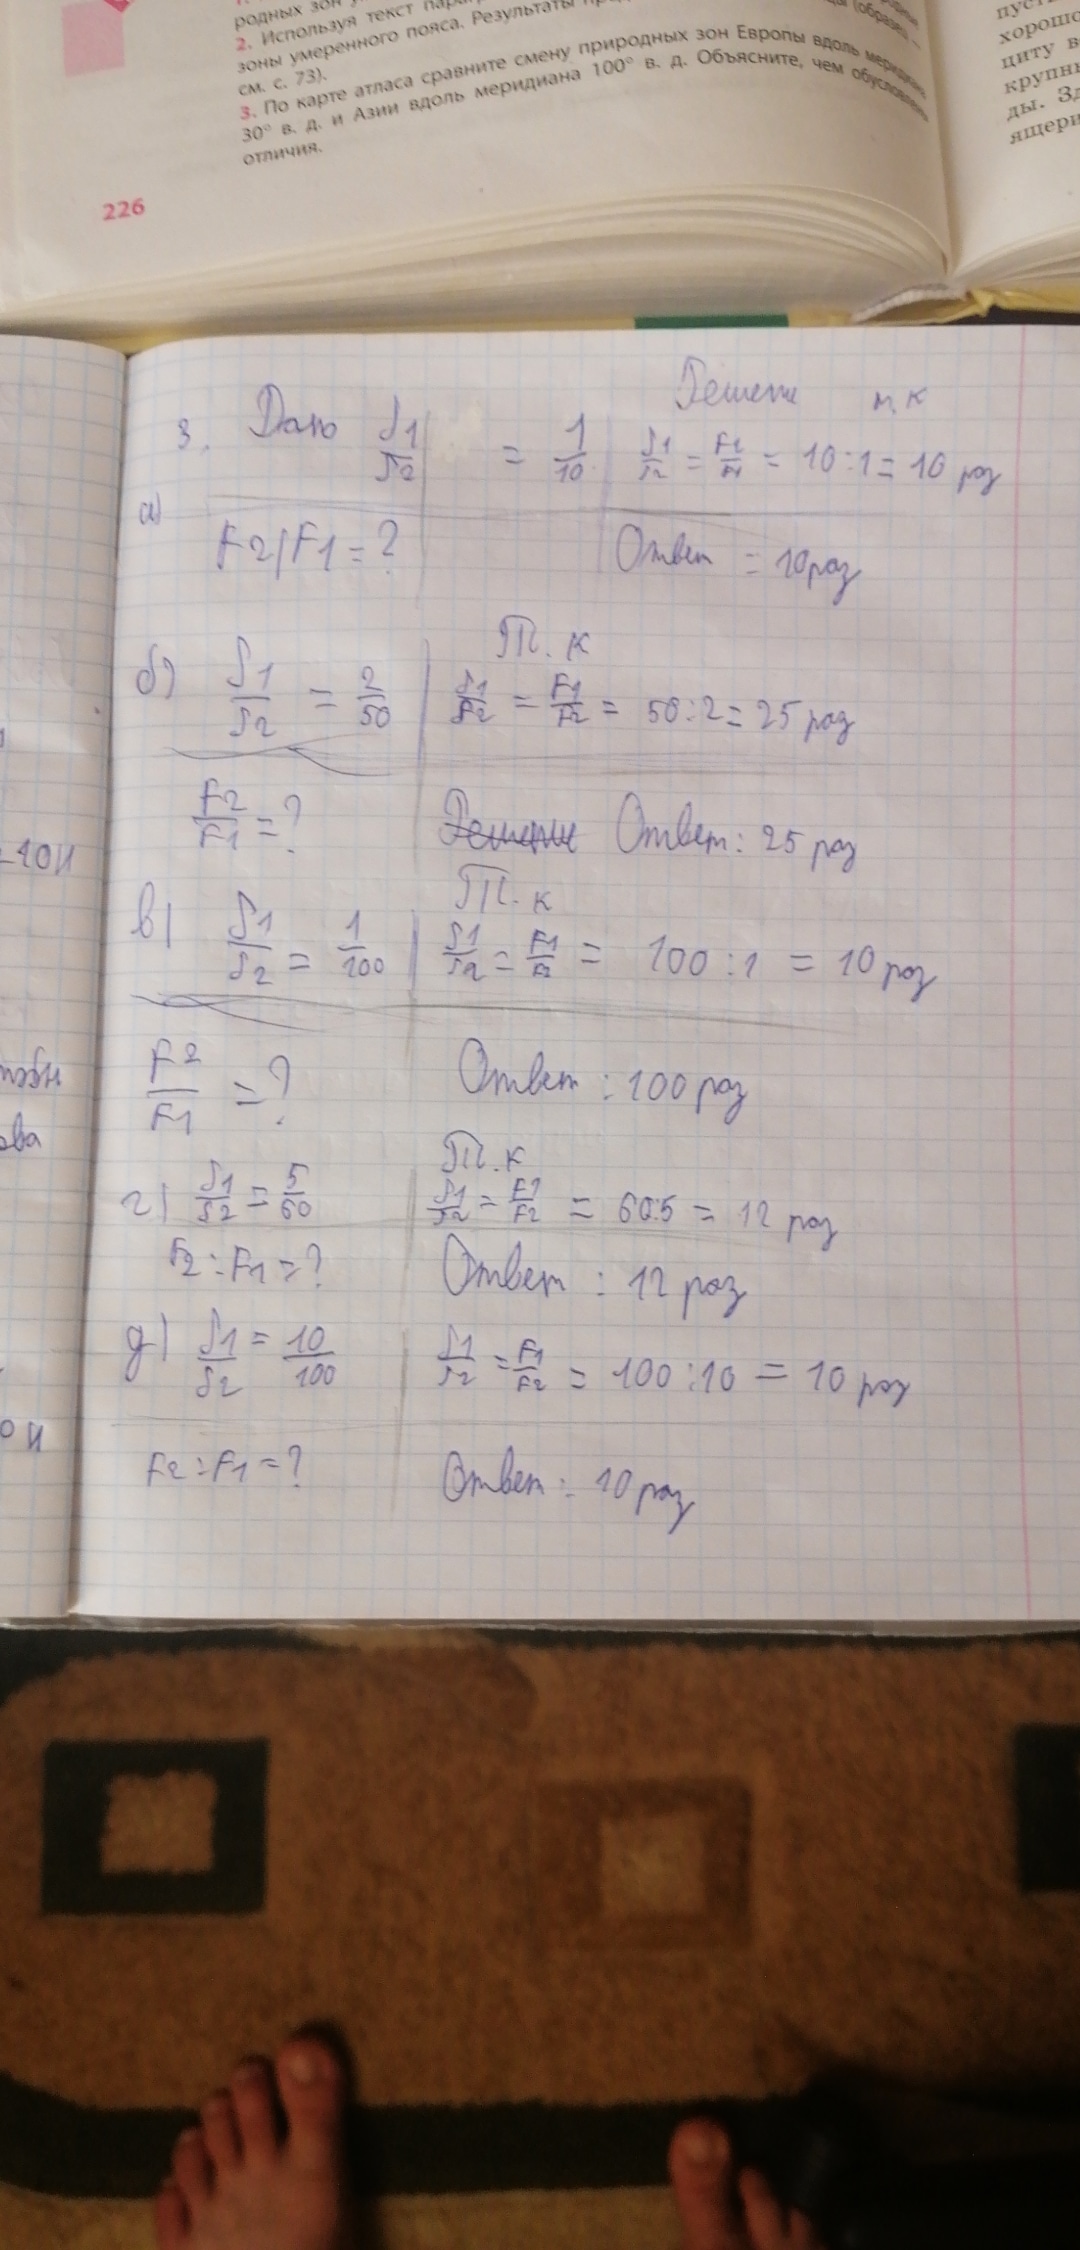 родных зон
2. Используя текст
зоны умеренного пояса. Результаты
(образец –
см. с. 73).
3. По карте атласа сравните смену природных зон Европы вдоль меридиана
30° в. д. и Азии вдоль меридиана 100° в. д. Объясните, чем обусловлены
отличия.
226
хорошо
циту в
крупны
ды. Зд
ящери
Решение т.к
3. Дано S1/S2 = 1/10 S1/S2 = F2/F1 = 10:1 = 10 раз
а)
F2/F1 = ? Ответ = 10 раз
Т.к
б) S1/S2 = 2/50 S1/S2 = F1/F2 = 50:2 = 25 раз
F2/F1 = ? Ответ: 25 раз
Т.к
в) S1/S2 = 1/100 S1/S2 = F1/F2 = 100:1 = 10 раз
F2/F1 = ? Ответ: 100 раз
Т.к
г) S1/S2 = 5/60 S1/S2 = F1/F2 = 60:5 = 12 раз
F2:F1 = ? Ответ: 12 раз
д) S1/S2 = 10/100 S1/S2 = F1/F2 = 100:10 = 10 раз
F2:F1 = ? Ответ: 10 раз